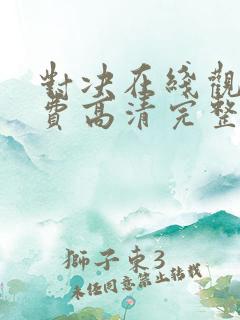 對決在綫觀
費高清完整
獅子東3
未经同意禁止转载